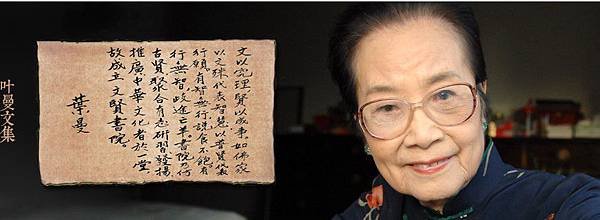 文以究理賢以成事如佛家
以文殊代表智慧以普賢代表
行願有智無行說食不飽有
行無智歧途亡羊書院乃仿
古賢聚合有志研習發揚
推廣中華文化者於一堂
故成立文賢書院
葉曼
叶曼文集